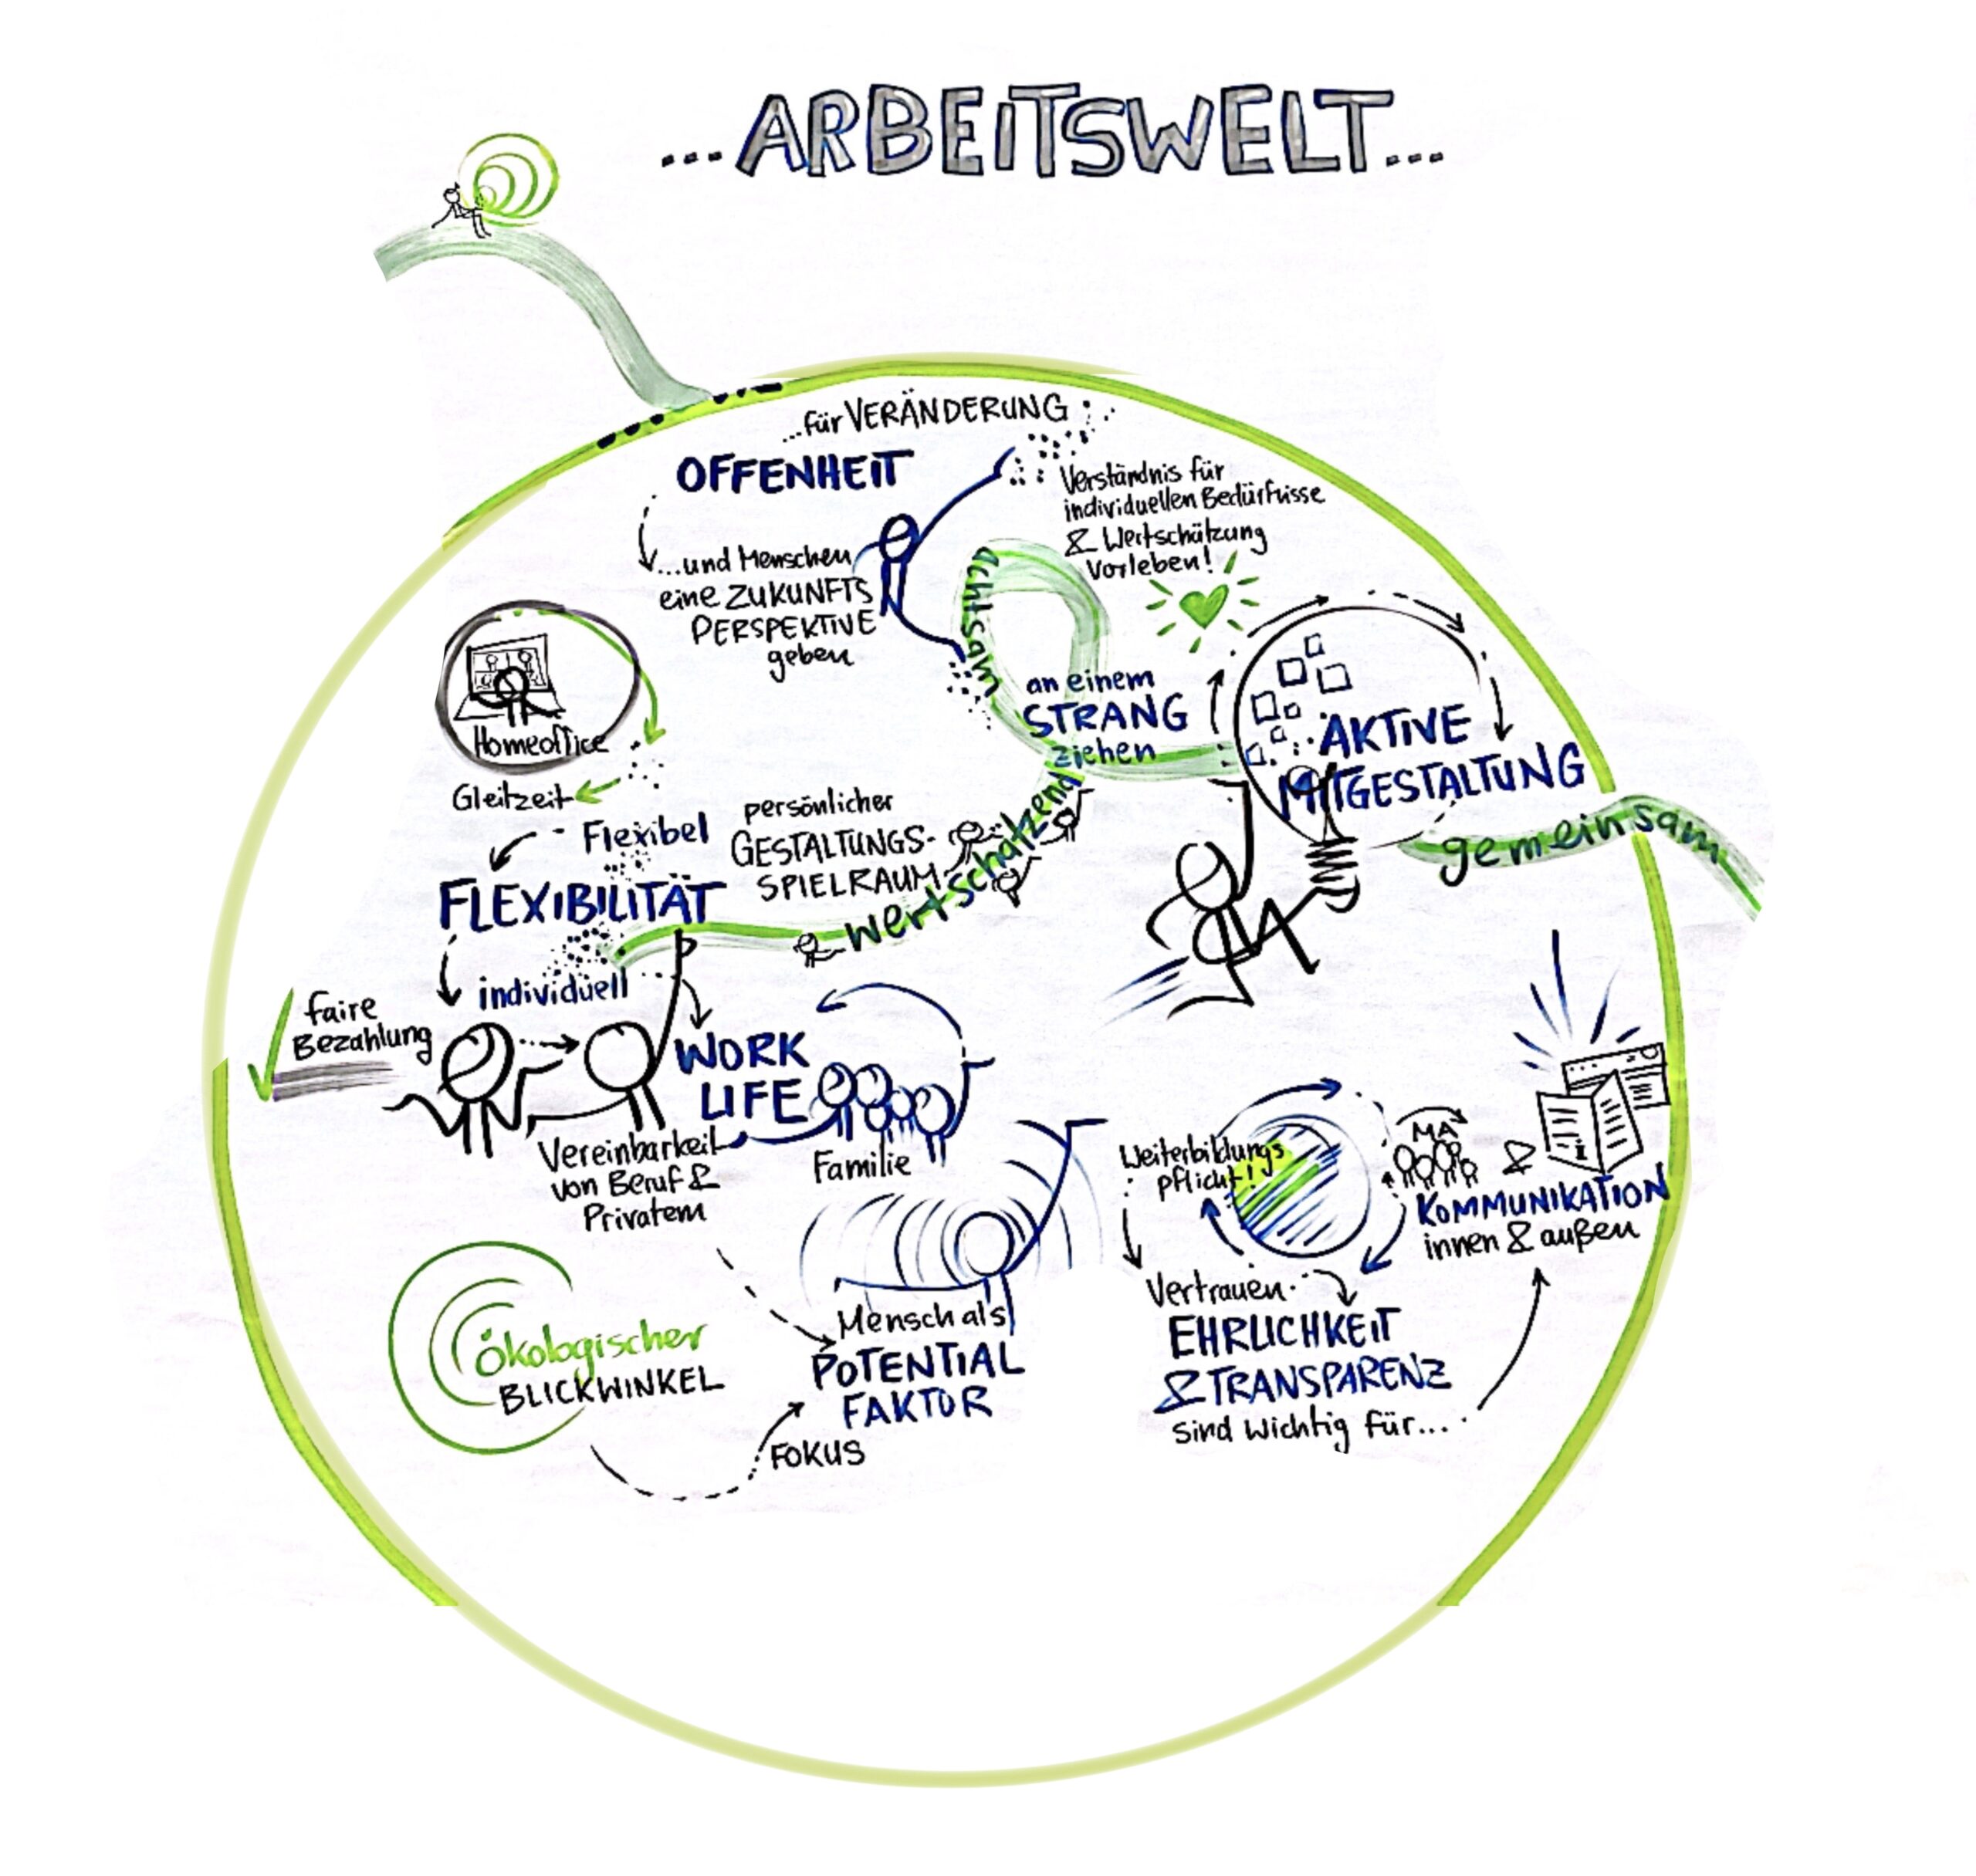 ...ARBEITSWELT...
...für VERÄNDERUNG
OFFENHEIT
...und Menschen
eine ZUKUNFTS
PERSPEKTIVE
geben
Verständnis für
individuellen Bedürfnisse
& Wertschätzung
vorleben!
achtsam
an einem
STRANG
ziehen
AKTIVE
MITGESTALTUNG
gemeinsam
Homeoffice
Gleitzeit
Flexibel
FLEXIBILITÄT
individuell
persönlicher
GESTALTUNGS-
SPIELRAUM
wertschätzend
faire
Bezahlung
WORK
LIFE
Vereinbarkeit
von Beruf &
Privatem
Familie
Ökologischer
BLICKWINKEL
FOKUS
Mensch als
POTENTIAL
FAKTOR
Weiterbildungs
pflicht!
MA
&
KOMMUNIKATION
innen & außen
Vertrauen
EHRLICHKEIT
& TRANSPARENZ
sind wichtig für...